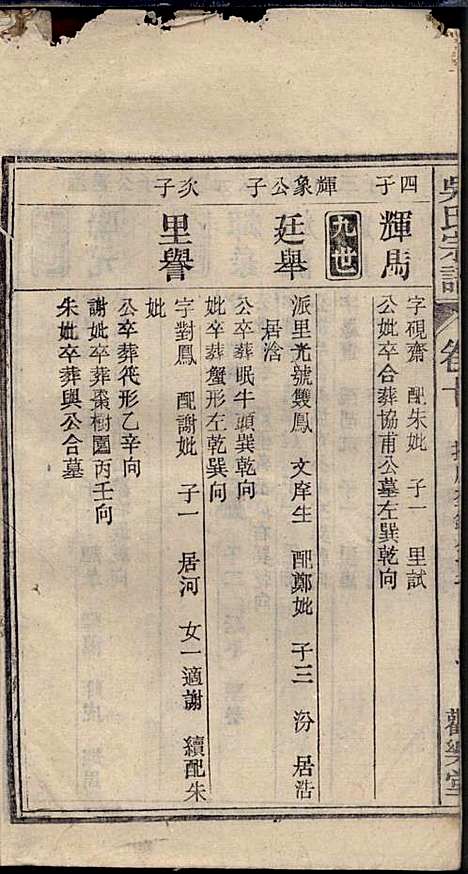 吳氏宗譜
卷十
觀樂堂
四子
輝馬
字硯齋 配朱妣 子一 里試
公妣卒合葬協甫公墓左巽乾向
九世
輝象公子
廷舉
派里光號雙鳳 文庠生 配鄭妣 子三 汾 居浩
居浛
公卒葬眠牛頭巽乾向
妣卒葬蟹形左乾巽向
次子
里譽
字對鳳 配謝妣 子一 居河 女一適謝 續配朱
妣
公卒葬茷形乙辛向
謝妣卒葬棗樹園丙壬向
朱妣卒葬與公合墓